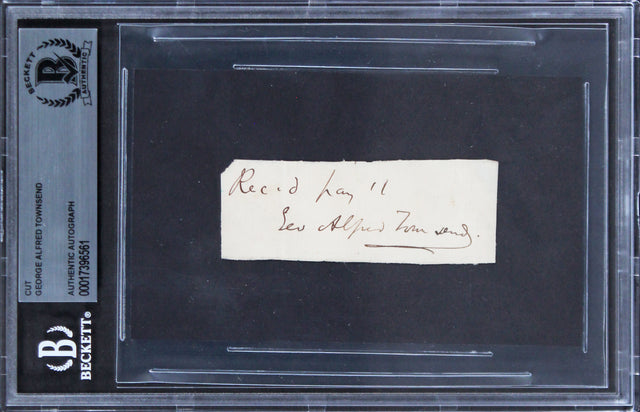 BECKETT
AUTHENTIC
CUT
GEORGE ALFRED TOWNSEND
AUTHENTIC AUTOGRAPH
00017396561
B
BECKETT®
Rec'd pay't
Geo Alfred Townsend.